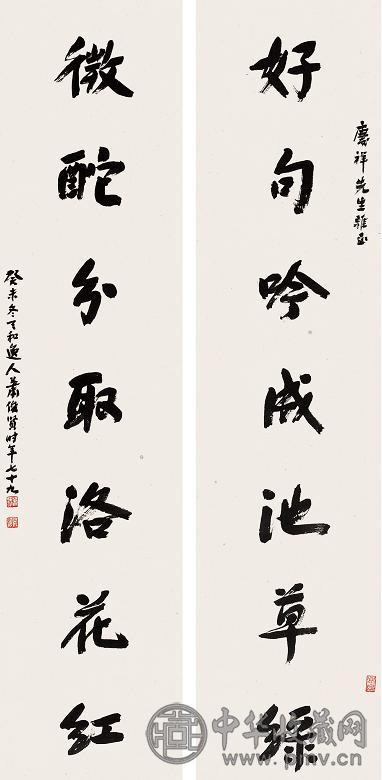 慶祥先生雅正
好句吟成池草綠
微酡分取洛花紅
癸未冬天和逸人蕭俊賢時年七十九
中华收藏网
www.pmv.cn